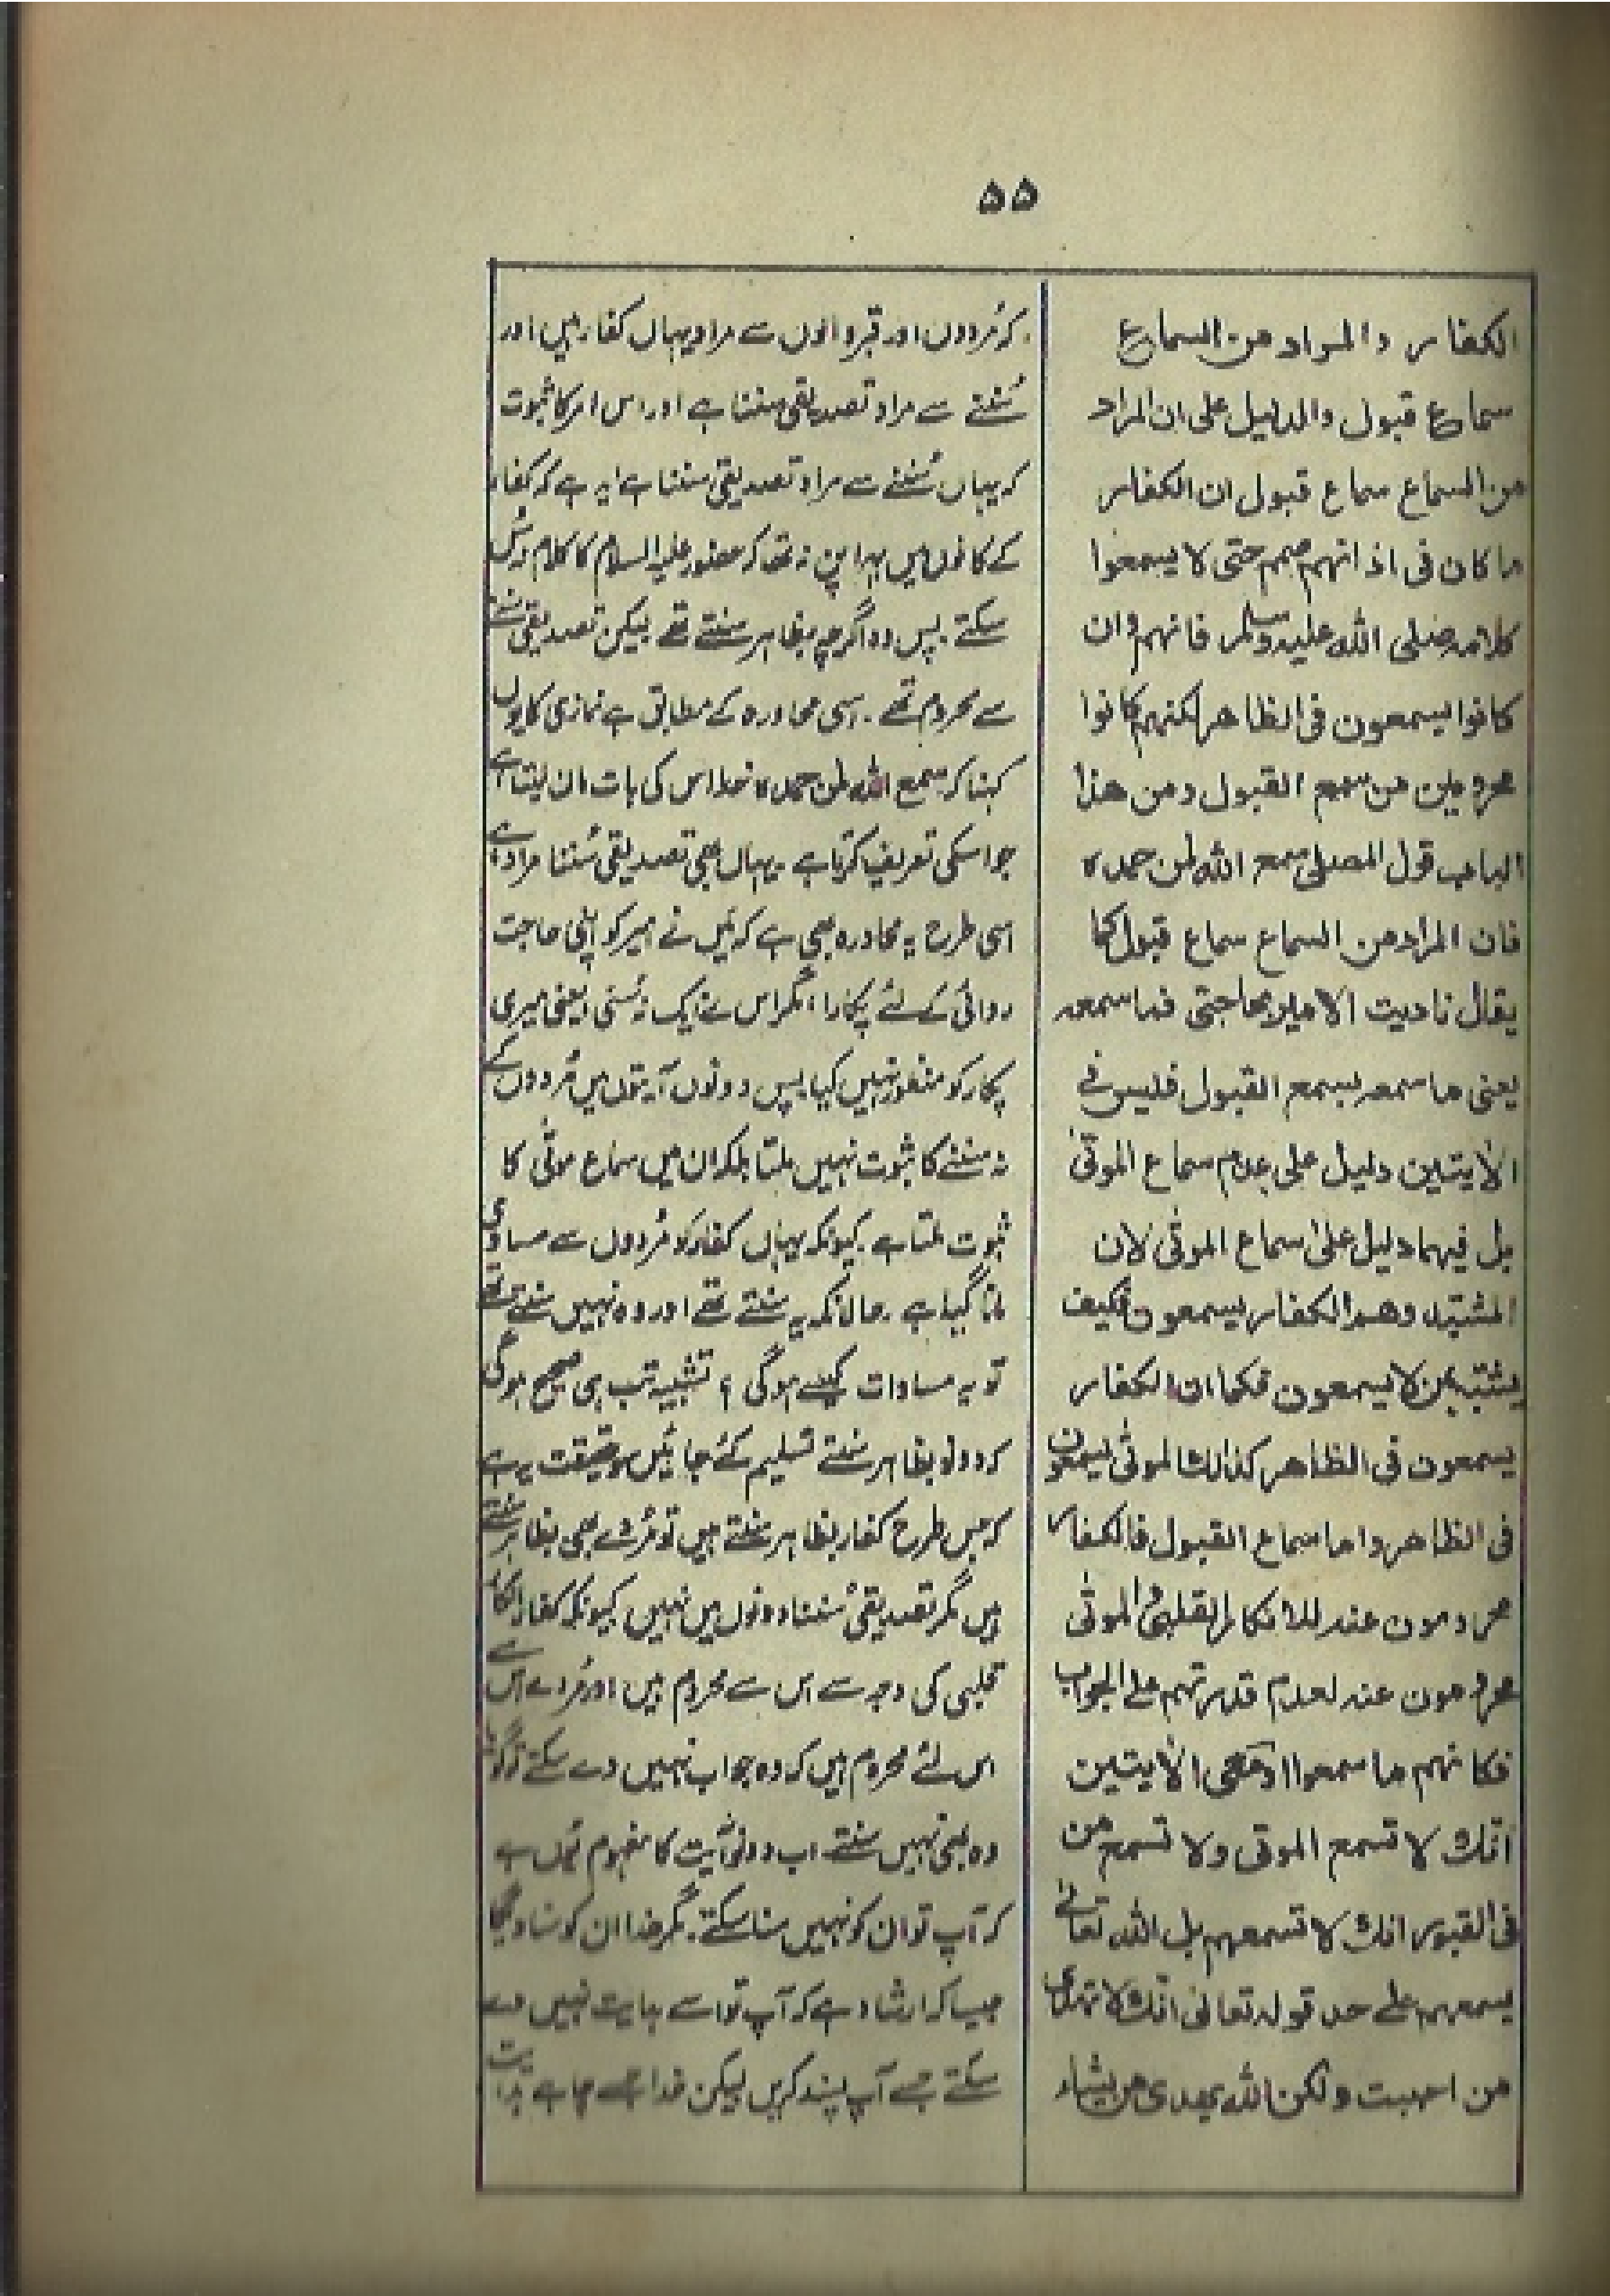 ۵۵
الکفار والمراد من السماع
سماع قبول والدلیل علی ان المراد
من السماع سماع قبول ان الکفار
ما کان فی اذانہم صمم حتی لا یسمعوا
کلامہ صلی اللہ علیہ وسلم فانہم وان
کانوا یسمعون فی الظاھر لکنہم کانوا
محرومین من سمع القبول ومن ھذا
الباب قول المصلی سمع اللہ لمن حمدہ
فان المراد من السماع سماع قبول کما
یقال نادیت الامیر بحاجتی فما سمعہ
یعنی ما سمعہ بسمع القبول فلیس فی
الاٰیتین دلیل علی عدم سماع الموتیٰ
بل فیہما دلیل علیٰ سماع الموتیٰ لان
المشتبہ وھو الکفار یسمعون فکیف
یشتبہ بمن لا یسمعون فکما ان الکفار
یسمعون فی الظاھر کذالک الموتیٰ یسمعون
فی الظاھر واما سماع القبول فالکفار
محرومون عنہ للانکار القلبی والموتیٰ
محرومون عنہ لعدم قدرتہم علی الجواب
فکانہم ما سمعوا الاٰیتین
انک لا تسمع الموتی ولا تسمع من
فی القبور انک لا تسمعہم بل اللہ تعالیٰ
یسمعہم علی حد قولہ تعالیٰ انک لا تہدی
من احببت ولکن اللہ یھدی من یشاء
کہ مُردوں اور قبر والوں سے مراد یہاں کفار ہیں اور
سُننے سے مراد تصدیقی سننا ہے اور اس امر کا ثبوت
کہ یہاں سُننے سے مراد تصدیقی سننا ہے یہ ہے کہ کفار
کے کانوں میں بہرا پن نہ تھا کہ حضور علیہ السلام کا کلام نہ سُن
سکتے پس وہ اگرچہ بظاہر سنتے تھے لیکن تصدیقی سننے
سے محروم تھے۔ اسی محاورہ کے مطابق ہے نمازی کا یوں
کہنا کہ سمع اللہ لمن حمدہ خدا اس کی بات مان لیتا ہے
جو اسکی تعریف کرتا ہے یہاں بھی تصدیقی سُننا مراد ہے
اسی طرح یہ محاورہ بھی ہے کہ میں نے امیر کو اپنی حاجت
روائی کے لئے پکارا، مگر اس نے ایک نہ سُنی یعنی میری
پکار کو منظور نہیں کیا پس دونوں آیتوں میں مُردوں کے
نہ سننے کا ثبوت نہیں ملتا بلکہ ان میں سماع موتیٰ کا
ثبوت ملتا ہے۔ کیونکہ یہاں کفار کو مُردوں سے مساوی
مانا گیا ہے۔ حالانکہ یہ سنتے تھے اور وہ نہیں سنتے تھے
تو یہ مساوات کیسے ہوگی؟ تشبیہ تب ہی صحیح ہوگی
کہ دونو بظاہر سنتے تسلیم کئے جائیں سو حقیقت یہ ہے
کہ جس طرح کفار بظاہر سنتے ہیں تو مُردے بھی بظاہر سنتے
ہیں مگر تصدیقی سُننا دونوں میں نہیں کیونکہ کفار انکار
قلبی کی وجہ سے اس سے محروم ہیں اور مُردے اس سے
اس لئے محروم ہیں کہ وہ جواب نہیں دے سکتے تو گویا
وہ بھی نہیں سنتے۔ اب دونوں آیت کا مفہوم یوں ہے
کہ آپ تو ان کو نہیں سنا سکتے۔ مگر خدا ان کو سنا دیگا
جیسا کہ ارشاد ہے کہ آپ تو اسے ہدایت نہیں دے
سکتے جسے آپ پسند کریں لیکن خدا جسے چاہے ہدایت